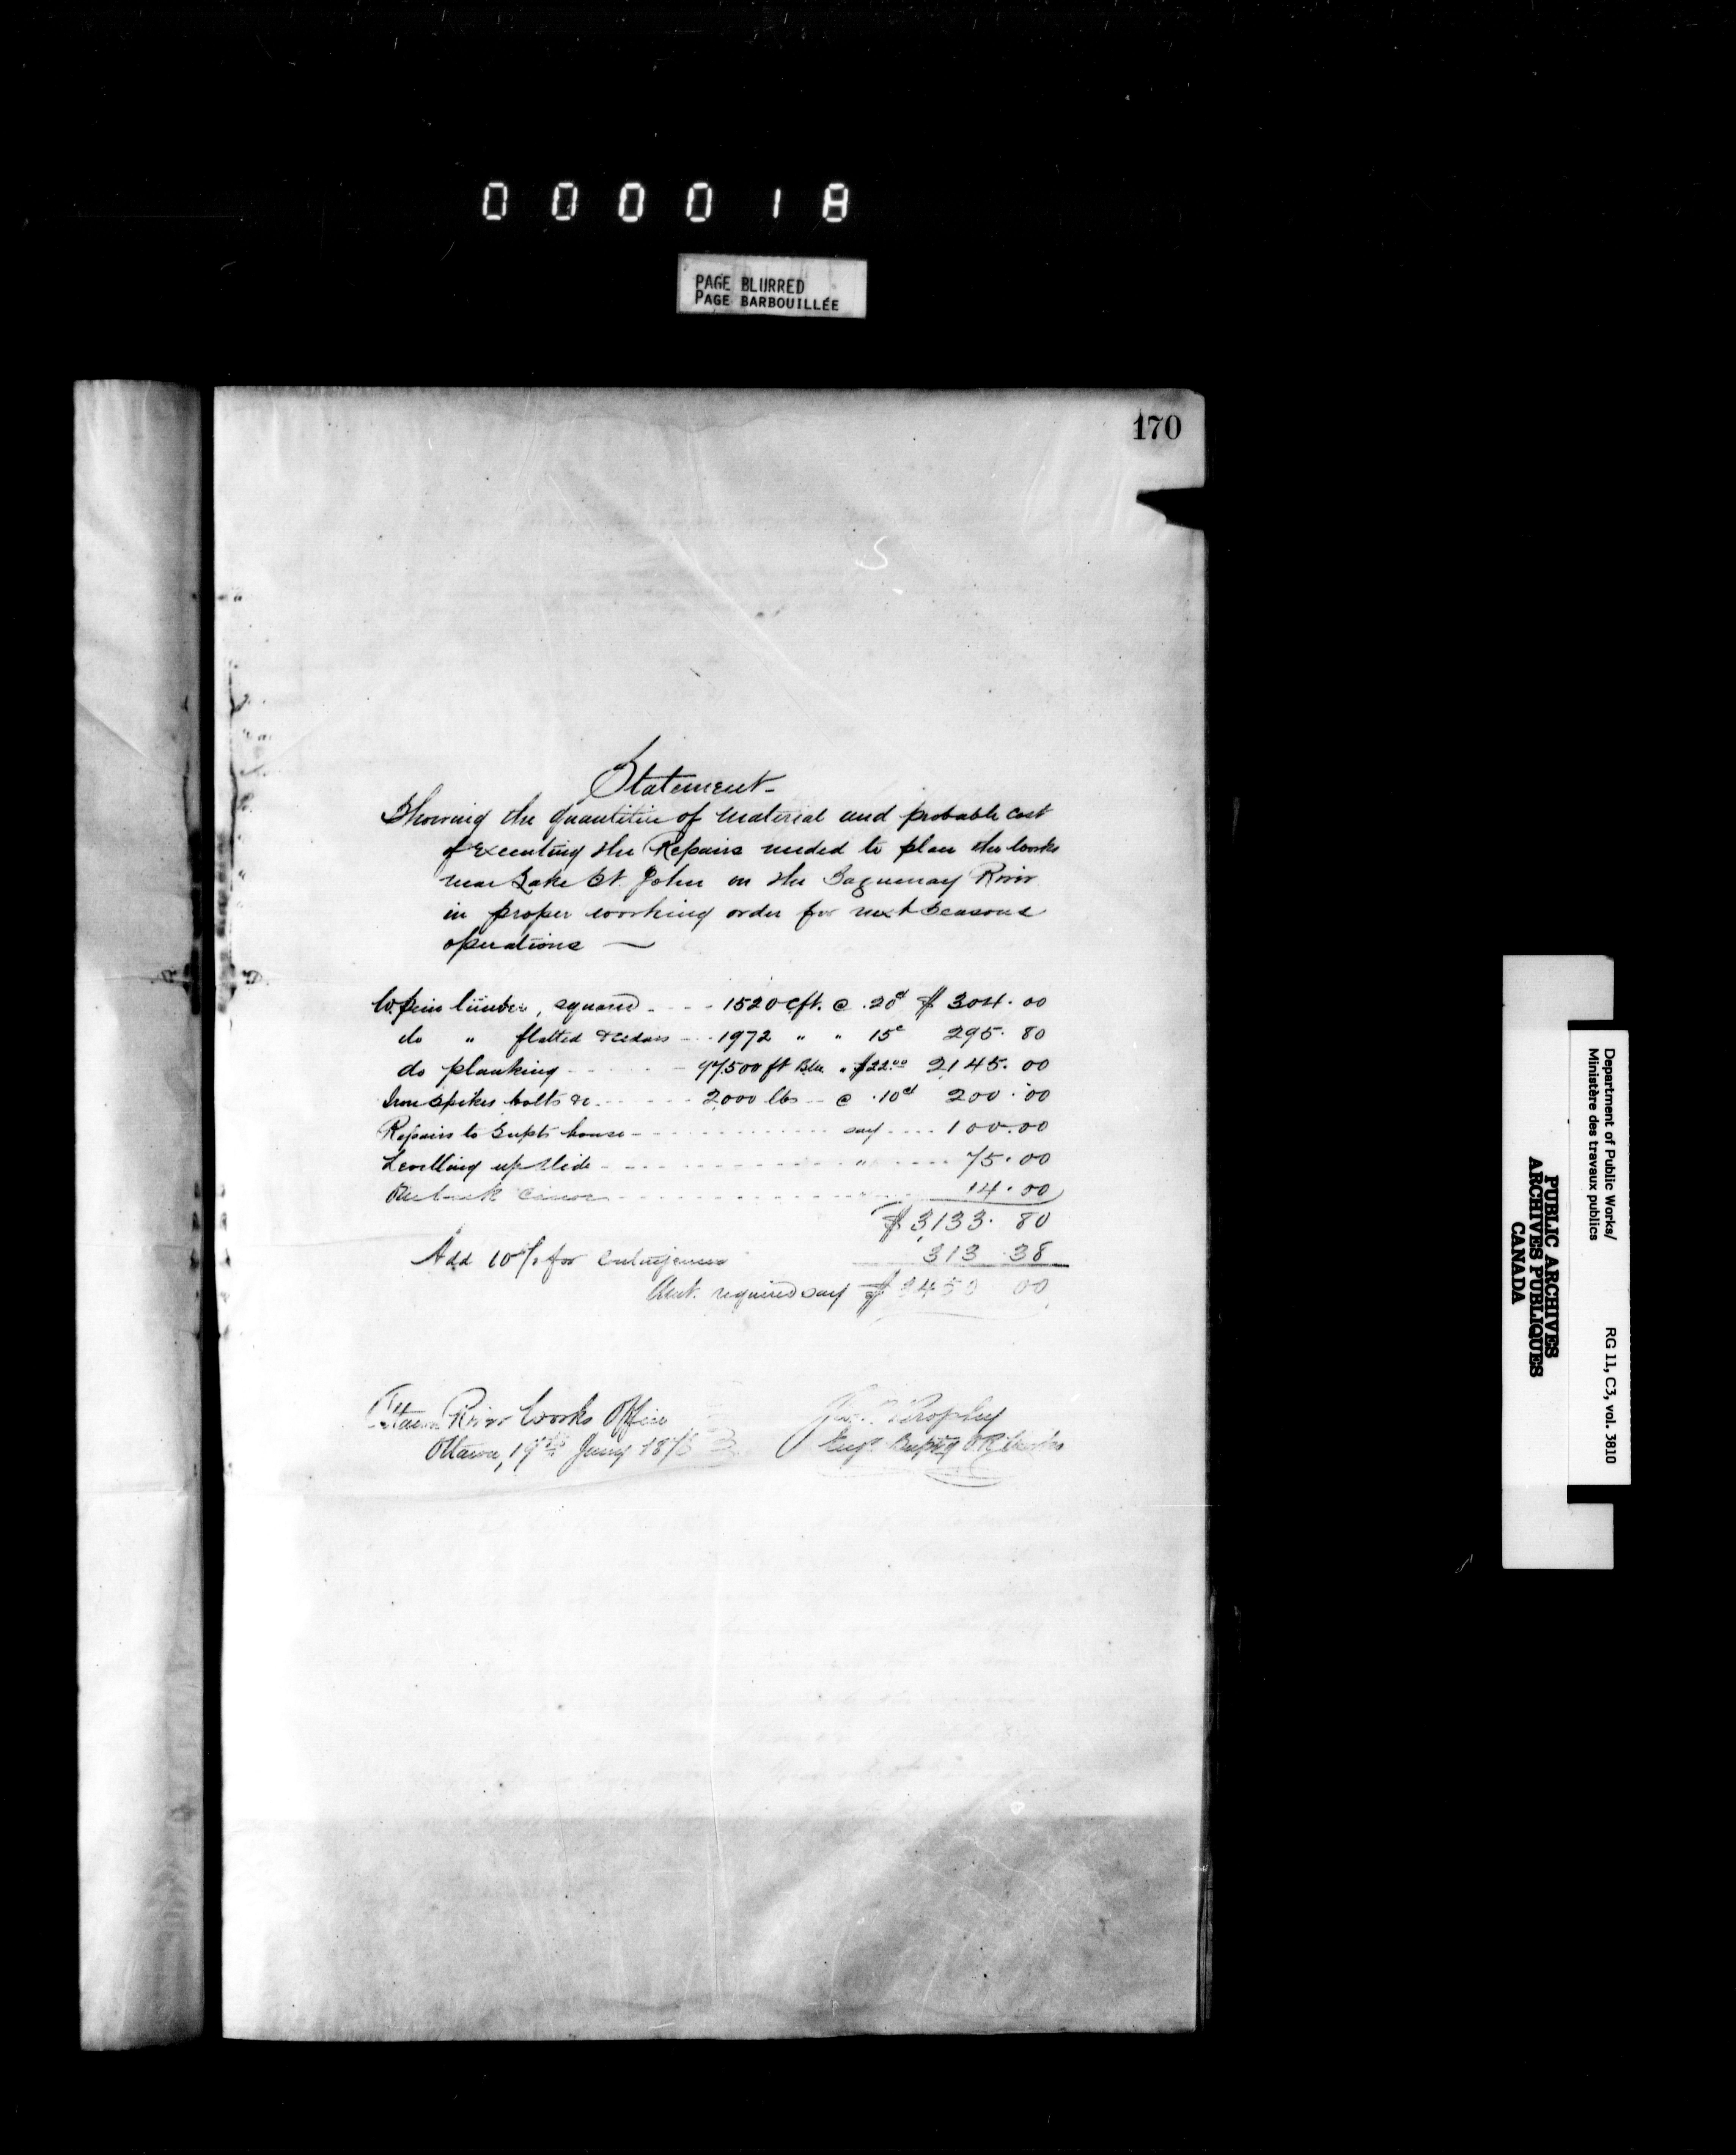 000018
PAGE BLURRED
PAGE BARBOUILLÉE
170
Statement
Showing the quantities of material and probable cost
of executing the Repairs needed to place the works
near Lake St. John on the Saguenay River
in proper working order for next seasons
operations —
W. pine timber, squared - - - 1520 cft. @ .20 $ 304.00
do " flatted & cedars - - 1972 " " 15c 295.80
do planking - - - 97,500 ft B.M. " $22.00 2,145.00
Iron spikes bolts &c - - - 2,000 lbs - - @ .10 200.00
Repairs to Supts house - - - say - - - 100.00
Levelling up slide - - - " - - - 75.00
canoe - - - " 14.00
$ 3,133.80
Add 10% for contingencies 313.38
Amt. required say $ 3450 00
Ottawa River Works Office
Ottawa, 19th Jany 187
Brophy
Supt O R Works
Department of Public Works/
Ministère des travaux publics
RG 11, C3, vol. 3810
PUBLIC ARCHIVES
ARCHIVES PUBLIQUES
CANADA